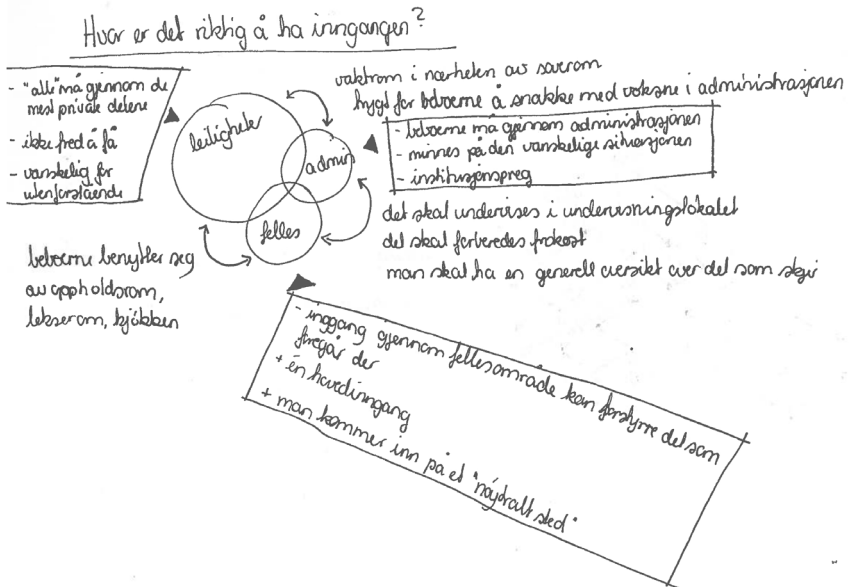 Hvor er det riktig å ha inngangen?
- "alle" må gjennom de
mest private delene
- ikke fred å få
- vanskelig for
utenforstående
leiligheter
admin
felles
vaktrom i nærheten av soverom
hygt for beboerne å snakke med voksne i administrasjonen
- beboerne må gjennom administrasjonen
- minnes på den vanskelige situasjonen
- institusjonspreg
det skal undervises i undervisningslokalet
det skal forberedes frokost
man skal ha en generell oversikt over det som skjer
beboerne benytter seg
av oppholdsrom,
lekserom, kjøkken
- inggang gjennom fellesområde kan forstyrre det som
foregår der
+ én hovedinngang
+ man kommer inn på et "nøytralt sted"